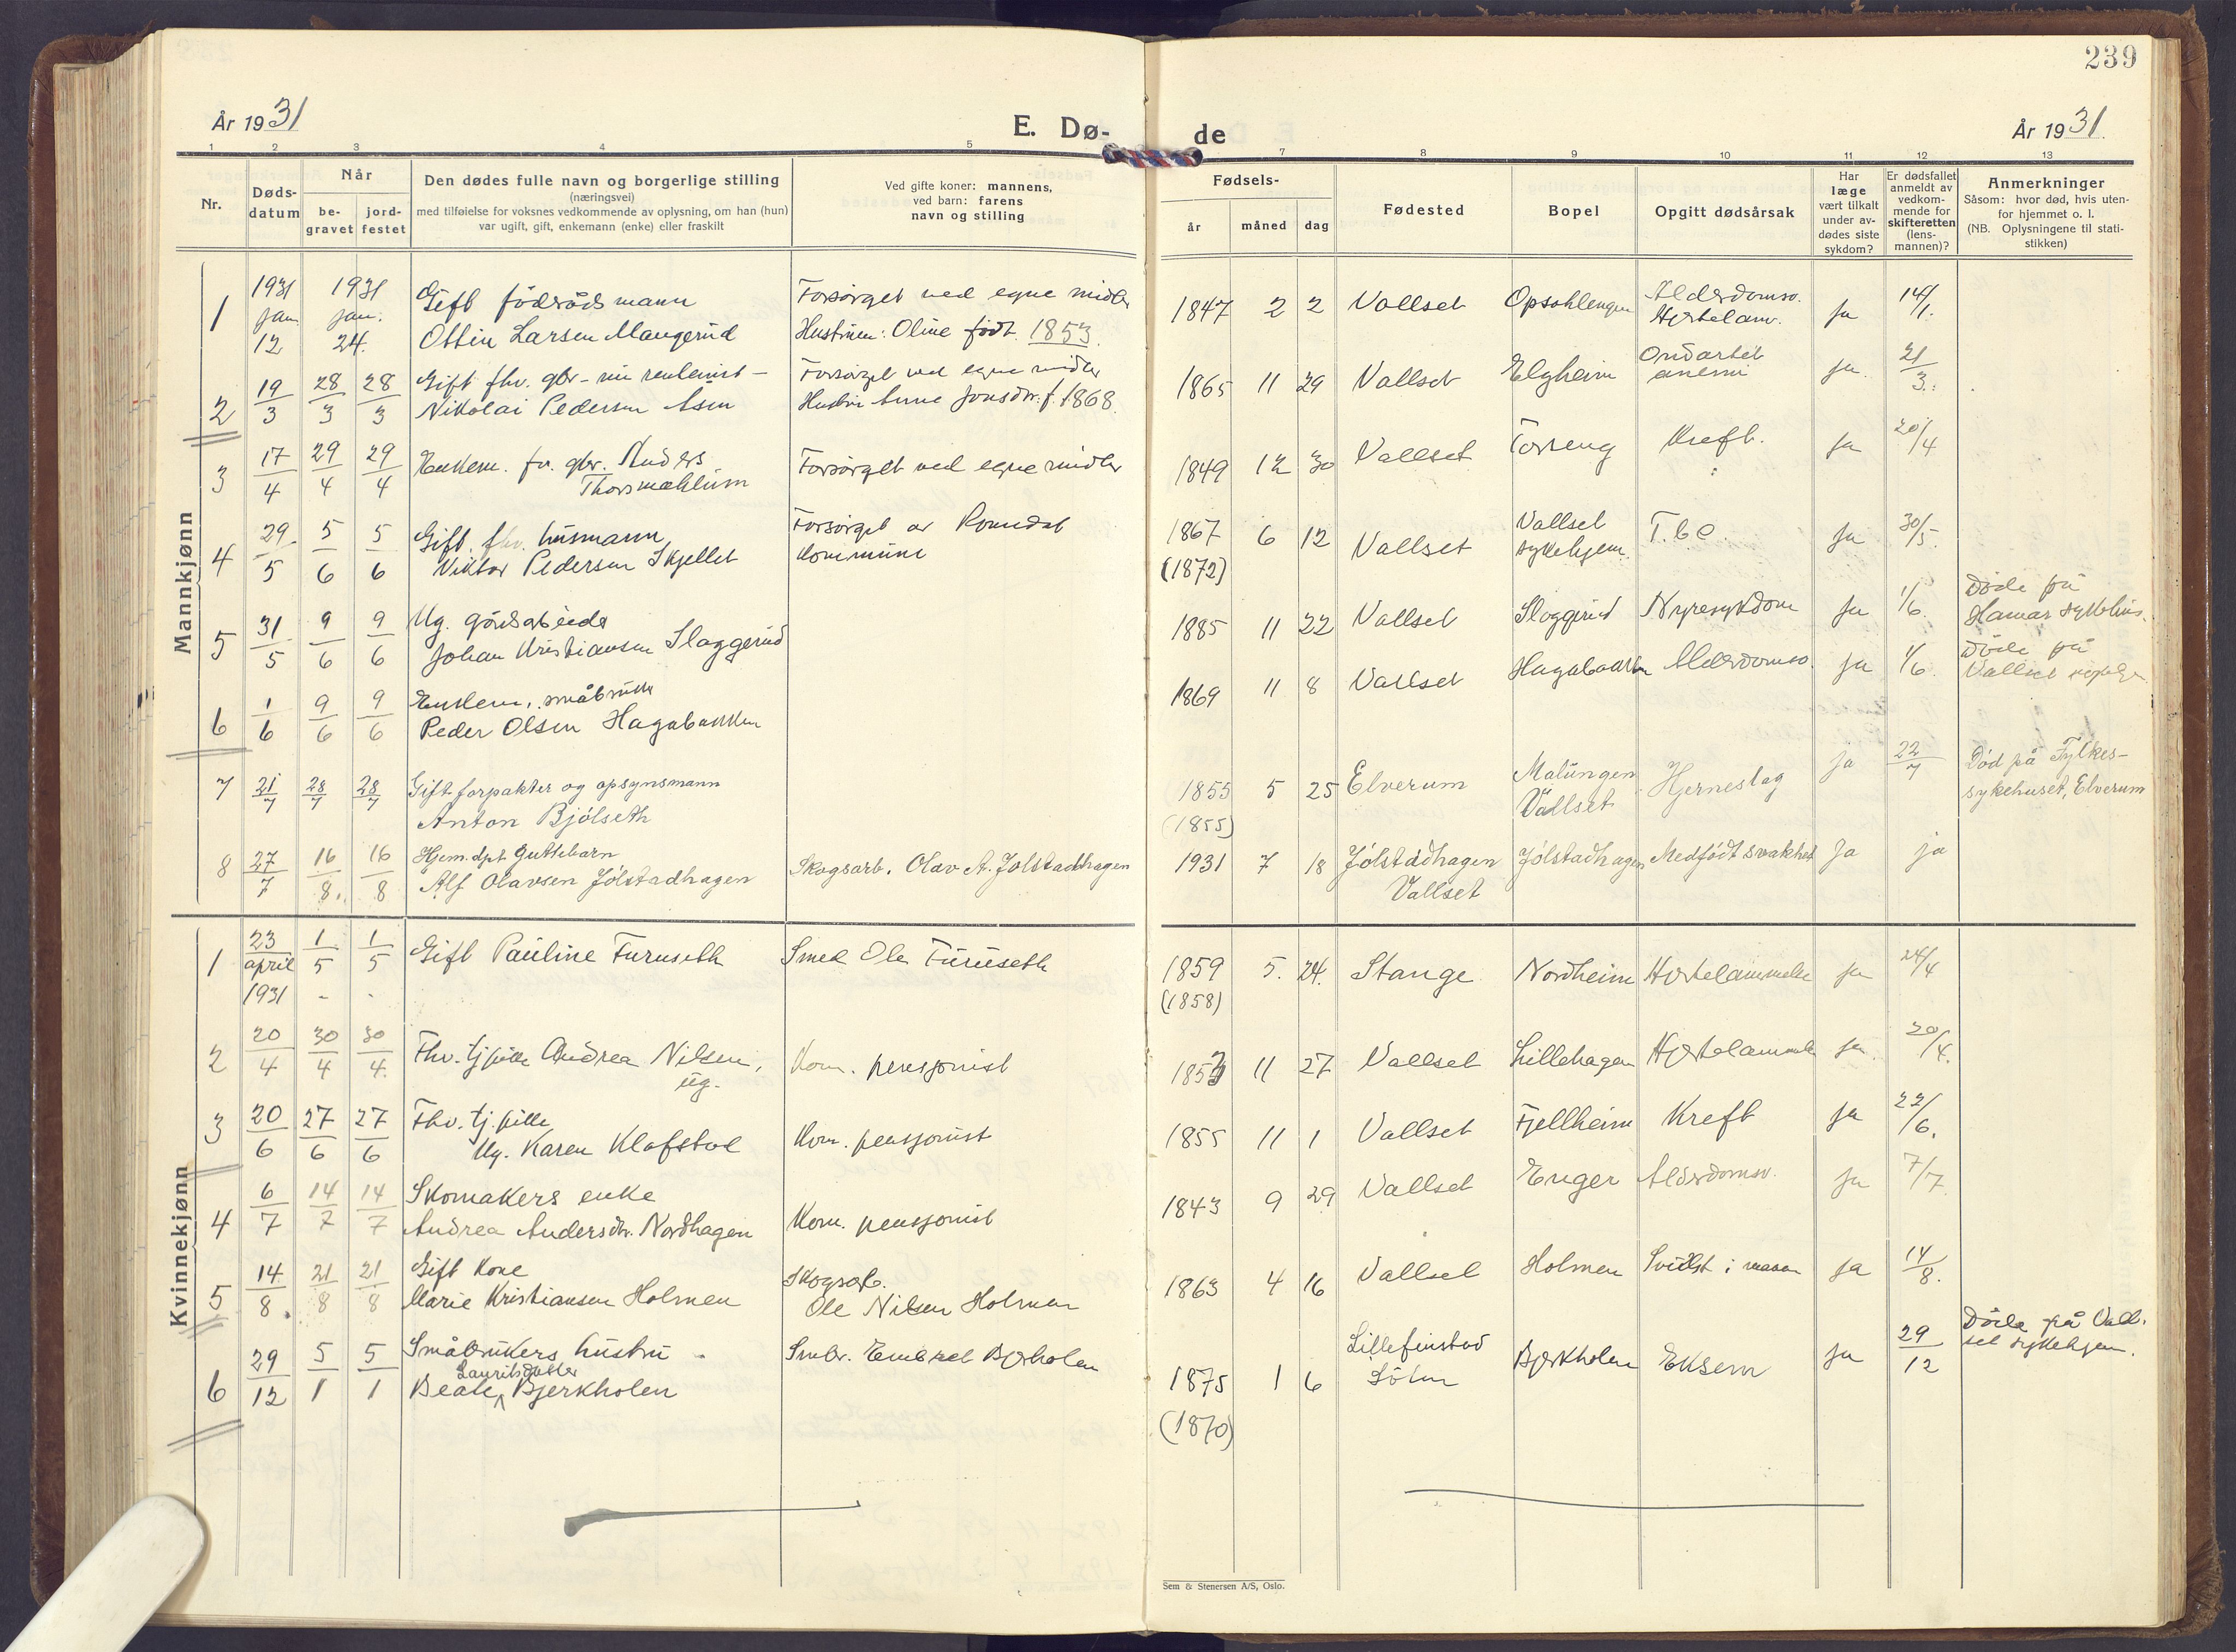 239
År 1931
E. Dø-
de
År 1931.
1 2 3 4 5 7 8 9 10 11 12 13
Nr.
Døds-
datum
Når
be-
gravet
jord-
festet
Den dødes fulle navn og borgerlige stilling
(næringsvei)
med tilføielse for voksnes vedkommende av oplysning, om han (hun)
var ugift, gift, enkemann (enke) eller fraskilt
Ved gifte koner: mannens,
ved barn: farens
navn og stilling
Fødsels-
år måned dag
Fødested
Bopel
Opgitt dødsårsak
Har
læge
vært tilkalt
under av-
dødes siste
sykdom?
Er dødsfallet
anmeldt av
vedkom-
mende for
skifteretten
(lens-
mannen)?
Anmerkninger
Såsom: hvor død, hvis uten-
for hjemmet o. l.
(NB. Oplysningene til stati-
stikken)
Mannkjønn
1 1931 jan. 12 1931 jan. 24. Gift föderåds mann
Ottin Larsen Maugerud
Forsørget ved egne midler
Hustruen: Oline født 1853.
1847 2 2 Vallset Opsahlengen Alderdomsv.
Hjertelam. ja 14/1.
2 19/3 28/3 28/3 Gift fhv. gbr - nu rentenist -
Nikolai Pedersen Åsen
Forsørget ved egne midler
Hustru Anne Jonsdtr. f. 1868.
1865 11 29 Vallset Elgheim Ondartet
anemi ja. 21/3.
3 17/4 29/4 29/4 Enkem. fv. gbr. Anders
Thorsmæhlum
Forsørget ved egne midler
1849 12 30 Vallset Torseng Kreft. ja 20/4
4 29/5 5/6 5/6 Gift. fhv. husmann
Viktor Pedersen Skjellet
Forsørget av Romedal
kommune
1867 6 12 Vallset Vallset
sykehjem. T.b.c. ja 30/5.
(1872)
5 31/5 9/6 9/6 Ug. gårdsarbeider
Johan Kristiansen Slaggerud
1885 11 22 Vallset Sloggerud Nyresykdom ja 1/6. Døde på
Hamar sykehus.
6 1/6 9/6 9/6 Enkem. småbruker
Peder Olsen Hagabakken
1869 11 8 Vallset Hagabakken Alderdomsv. ja 1/6. Døde på
Vallset
7 21/7 28/7 28/7 Gift forpakter og opsynsmann
Anton Bjølseth
1855 5 25 Elverum Malungen
Vallset Hjerneslag ja 22/7 Død på Fylkes-
sykehuset, Elverum
(1855)
8 27/7 16/8. 16/8 Hjem.dpt guttebarn
Alf Olavsen Jølstadhagen
Skogsarb. Olav A. Jølstadhagen
1931 7 18 Jølstadhagen
Vallset Jølstadhagen Medfødt svakhet Ja ja
Kvinnekjønn
1 23 april 1931 1/5 1/5 Gift Pauline Furuseth
Smed Ole Furuseth
1859 5. 24. Stange Nordheim Hjertelammelse ja 24/4
(1858)
2 20/4 30/4 30/4. Fhv. tjpike Andrea Nilsen,
ug.
Kom. pensjonist
1853 11 27 Vallset Lillehagen Hjertelammelse ja. 20/4.
3 20/6 27/6 27/6 Fhv. tj.pike
Ug. Karen Klofstoe
Kom. pensjonist
1855 11 1 Vallset Fjellheim Kreft ja 22/6.
4 6/7 14/7 14/7 Skomakers enke
Andrea Andersdtr. Nordhagen
Kom. pensjonist
1843 9 29 Vallset Enger Alderdomsv. ja 7/7
5 14/8. 21/8 21/8 Gift kone
Marie Kristiansen Holmen
Skogsarb.
Ole Nilsen Holmen
1863 4 16 Vallset Holmen Svulst i maven ja 14/8.
6 29/12 5/1 5/1 Småbrukers hustru
Lauritsdatter
Beate Bjerkholen
Smbr. Embret Bjerkholen
1875 1 6 Lillefinstad
Løten Bjerkholen Eksem ja 29/12 Døde på Vall-
set sykehjem.
(1870)
Sem & Stenersen A/S, Oslo.